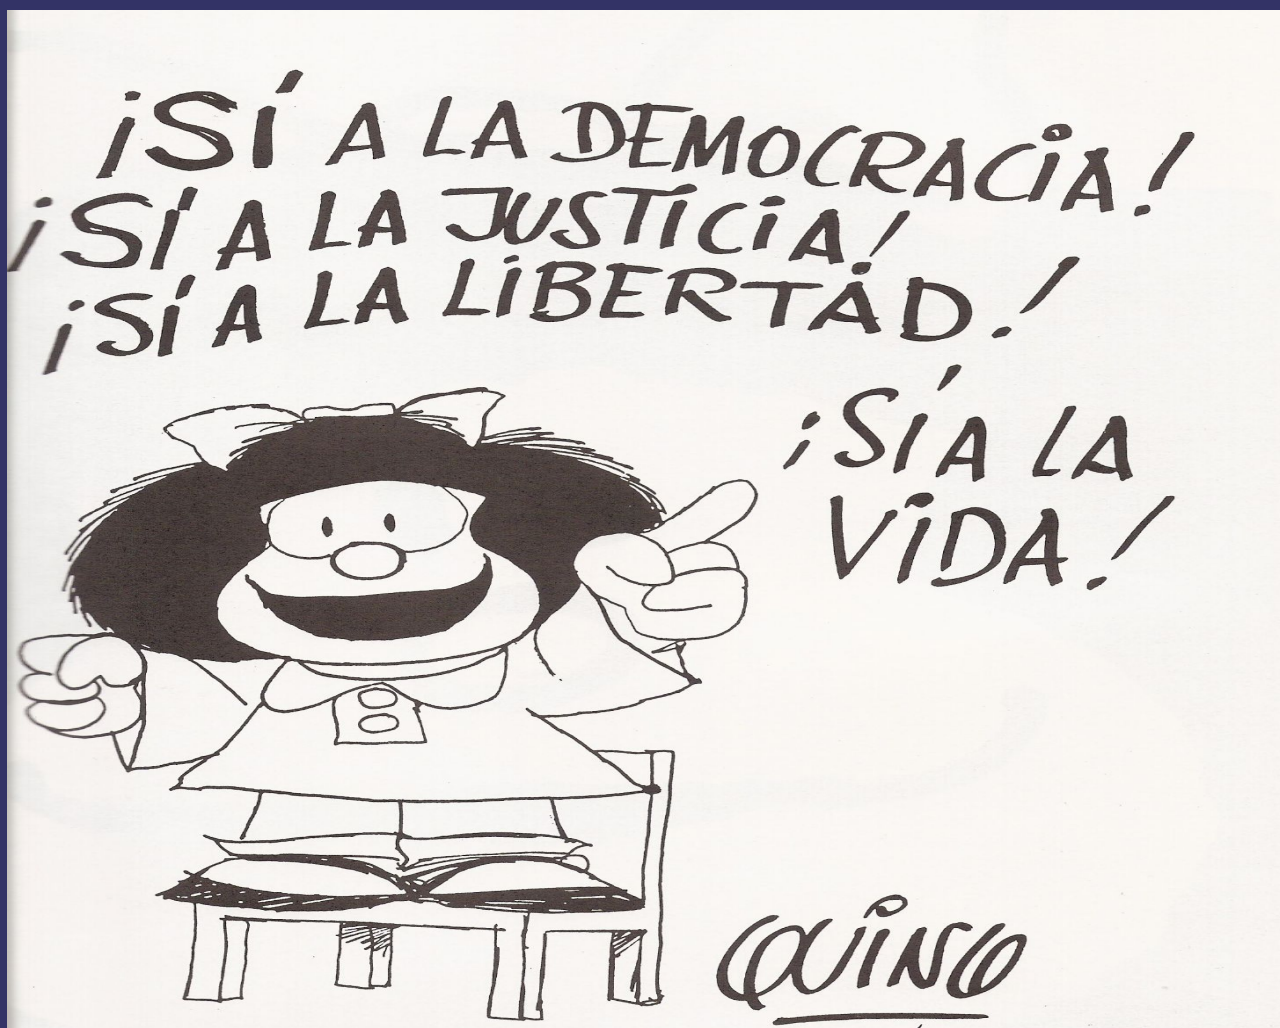 ¡SÍ A LA DEMOCRACIA!
¡SÍ A LA JUSTICIA!
¡SÍ A LA LIBERTAD!
¡SÍ A LA
VIDA!
QUINO